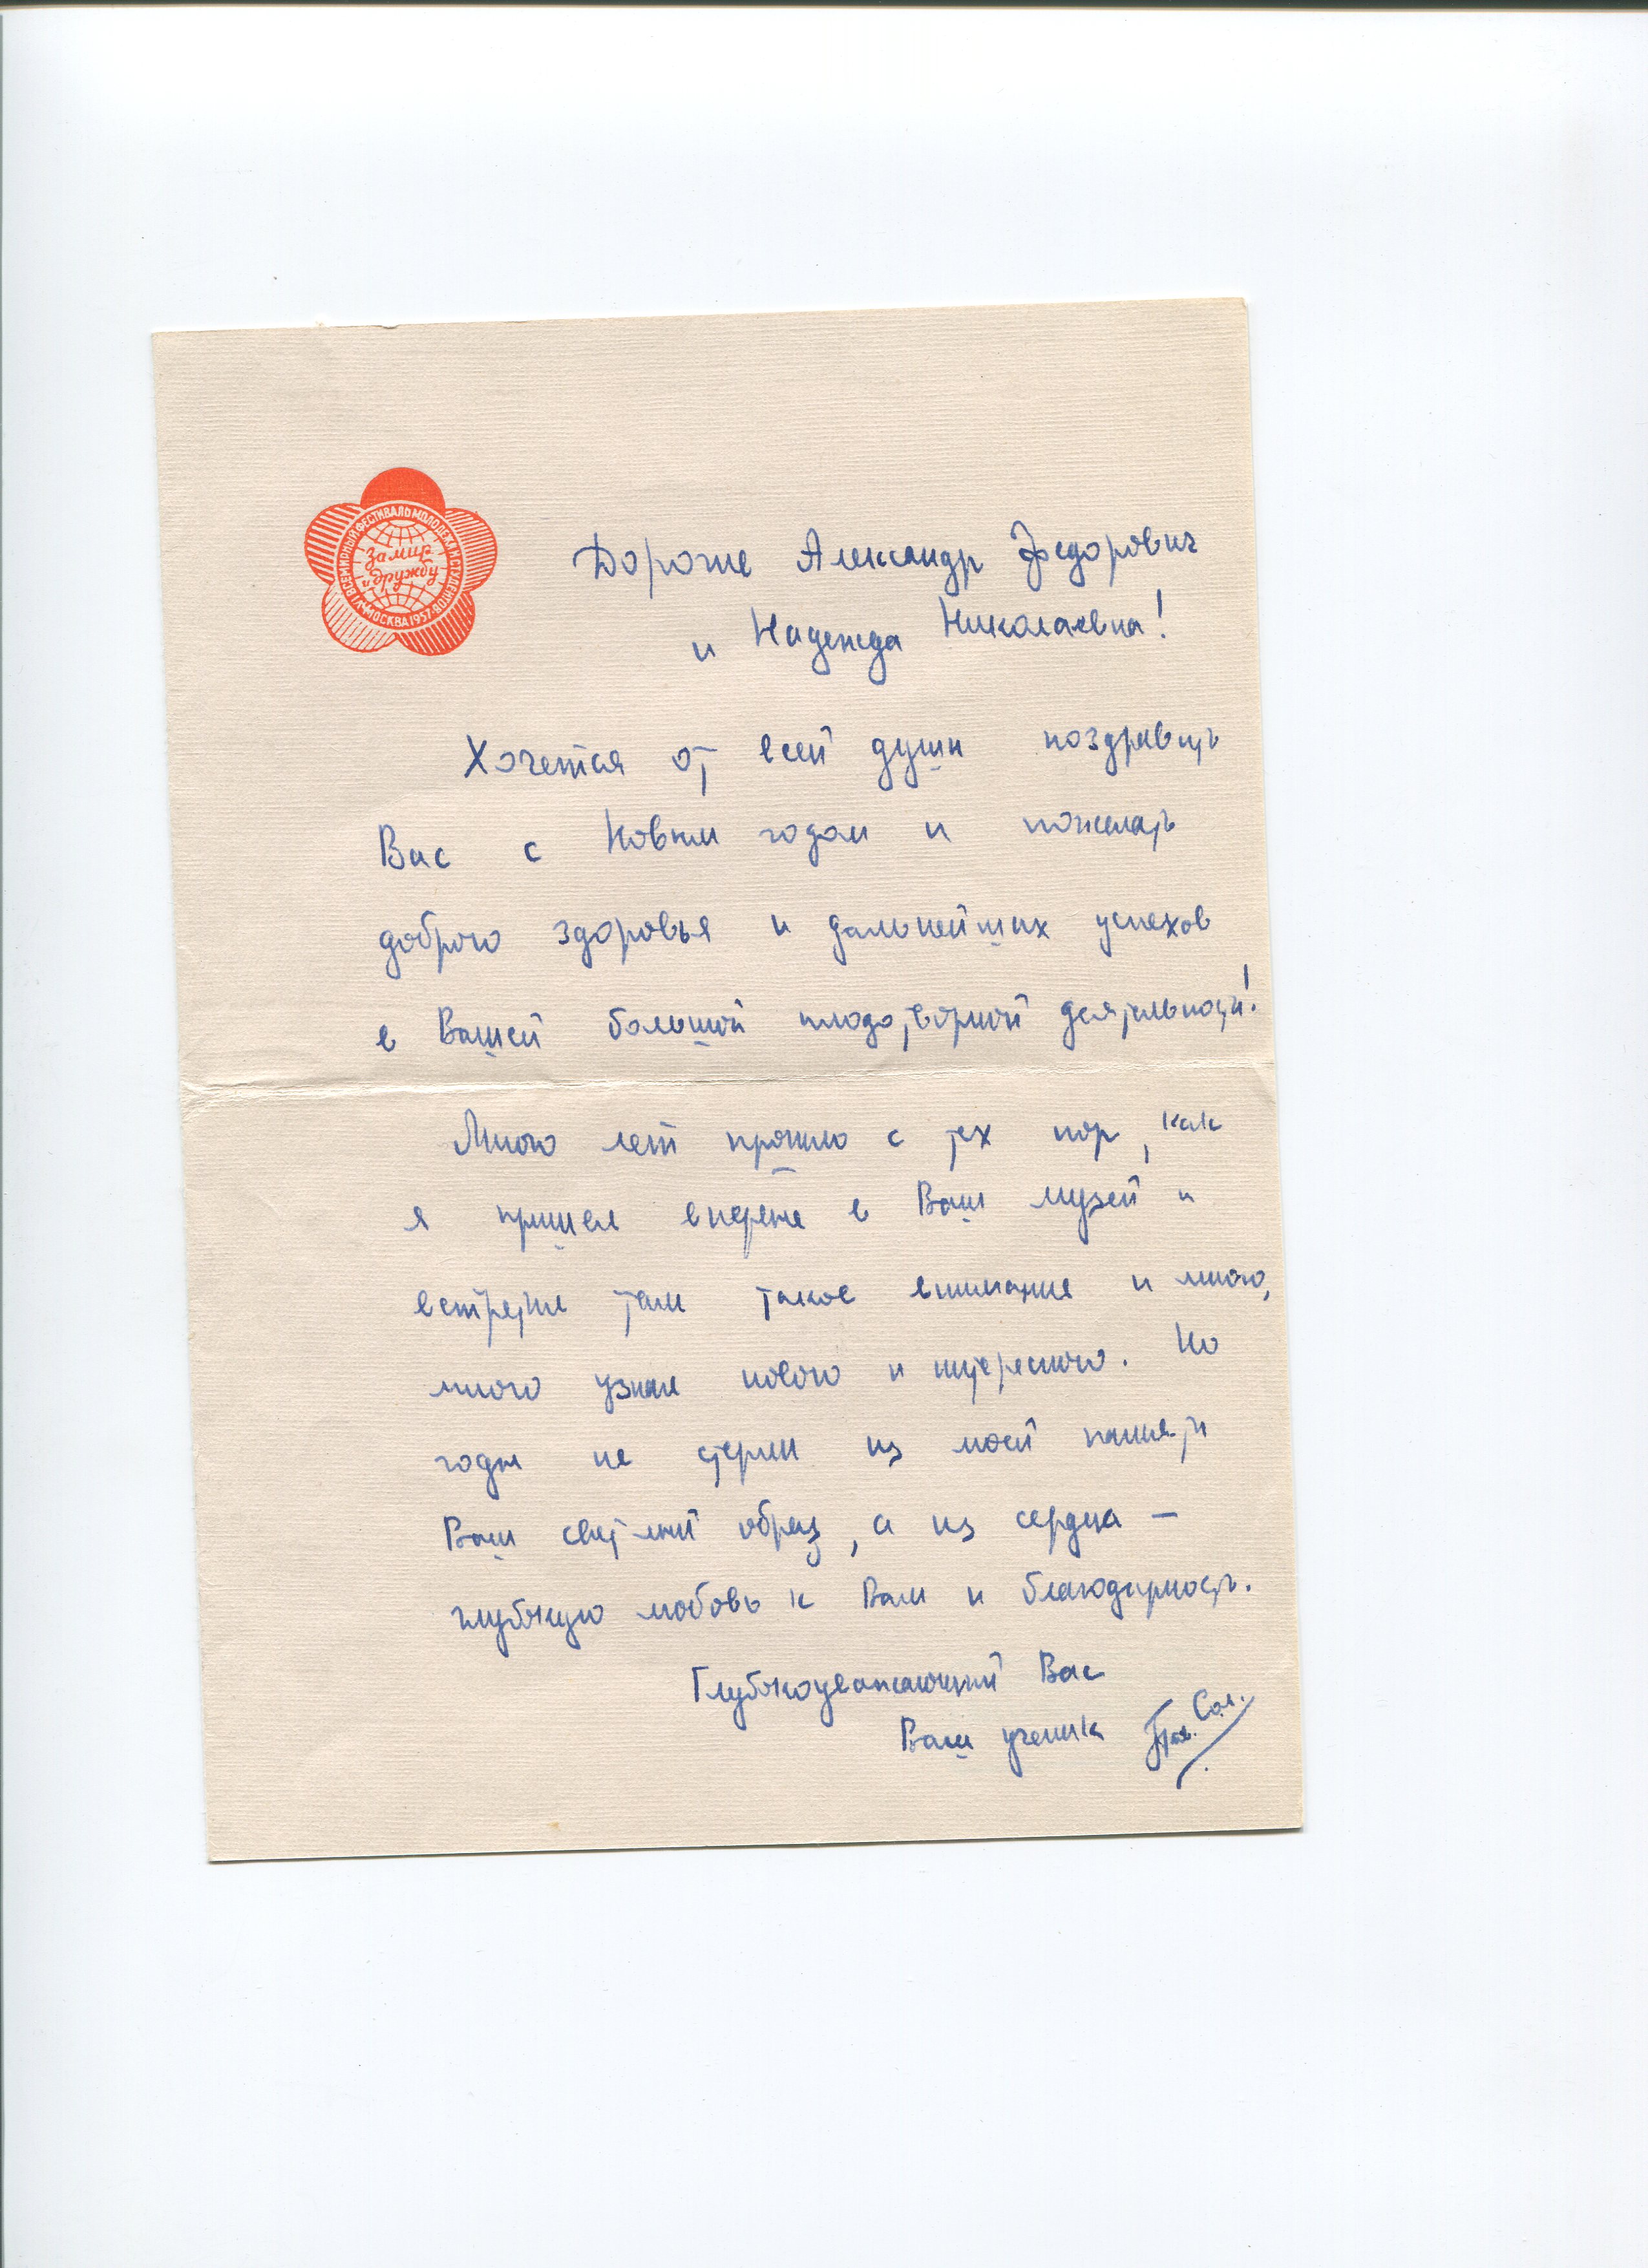 VI ВСЕМИРНЫЙ ФЕСТИВАЛЬ МОЛОДЕЖИ И СТУДЕНТОВ
МОСКВА 1957
За мир
и дружбу
Дорогие Александр Федорович
и Надежда Николаевна!
Хочется от всей души поздравить
Вас с Новым годом и пожелать
доброго здоровья и дальнейших успехов
в Вашей большой плодотворной деятельности!
Много лет прошло с тех пор, как
я пришел впервые в Ваш музей и
встретил там такое внимание и много,
много узнал нового и интересного. Но
годы не стерли из моей памяти
Ваш светлый образ, а из сердца –
глубокую любовь к Вам и благодарность.
Глубокоуважающий Вас
Ваш ученик